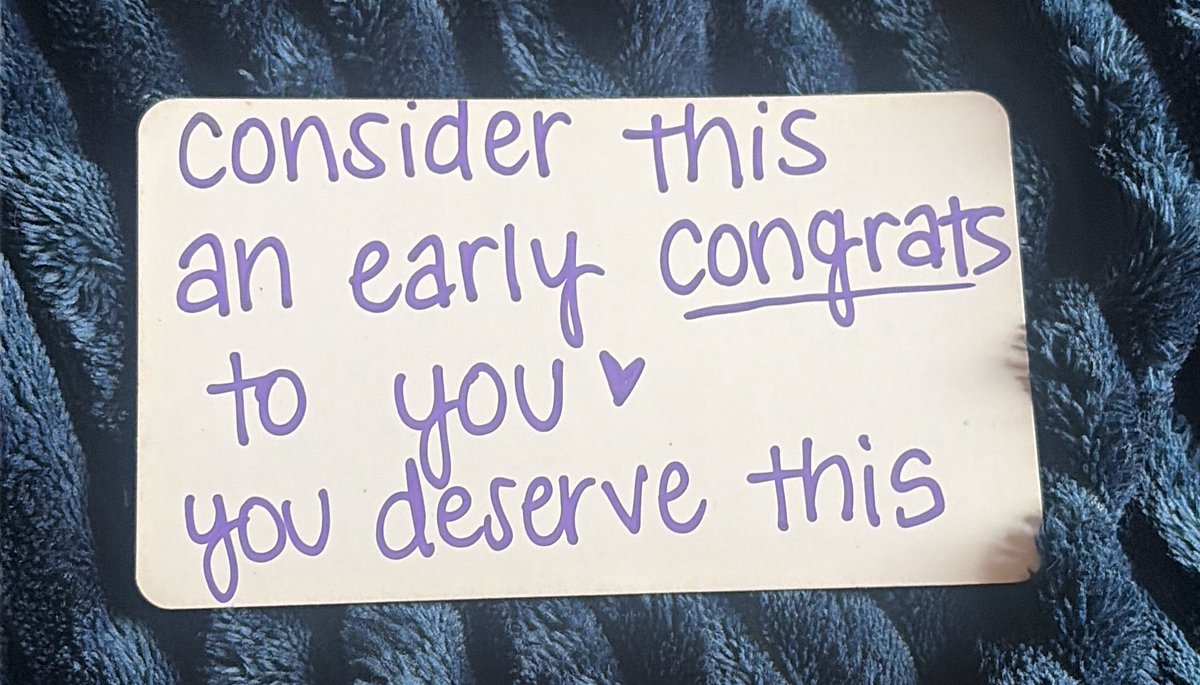 consider this
an early congrats
to you ♥
you deserve this